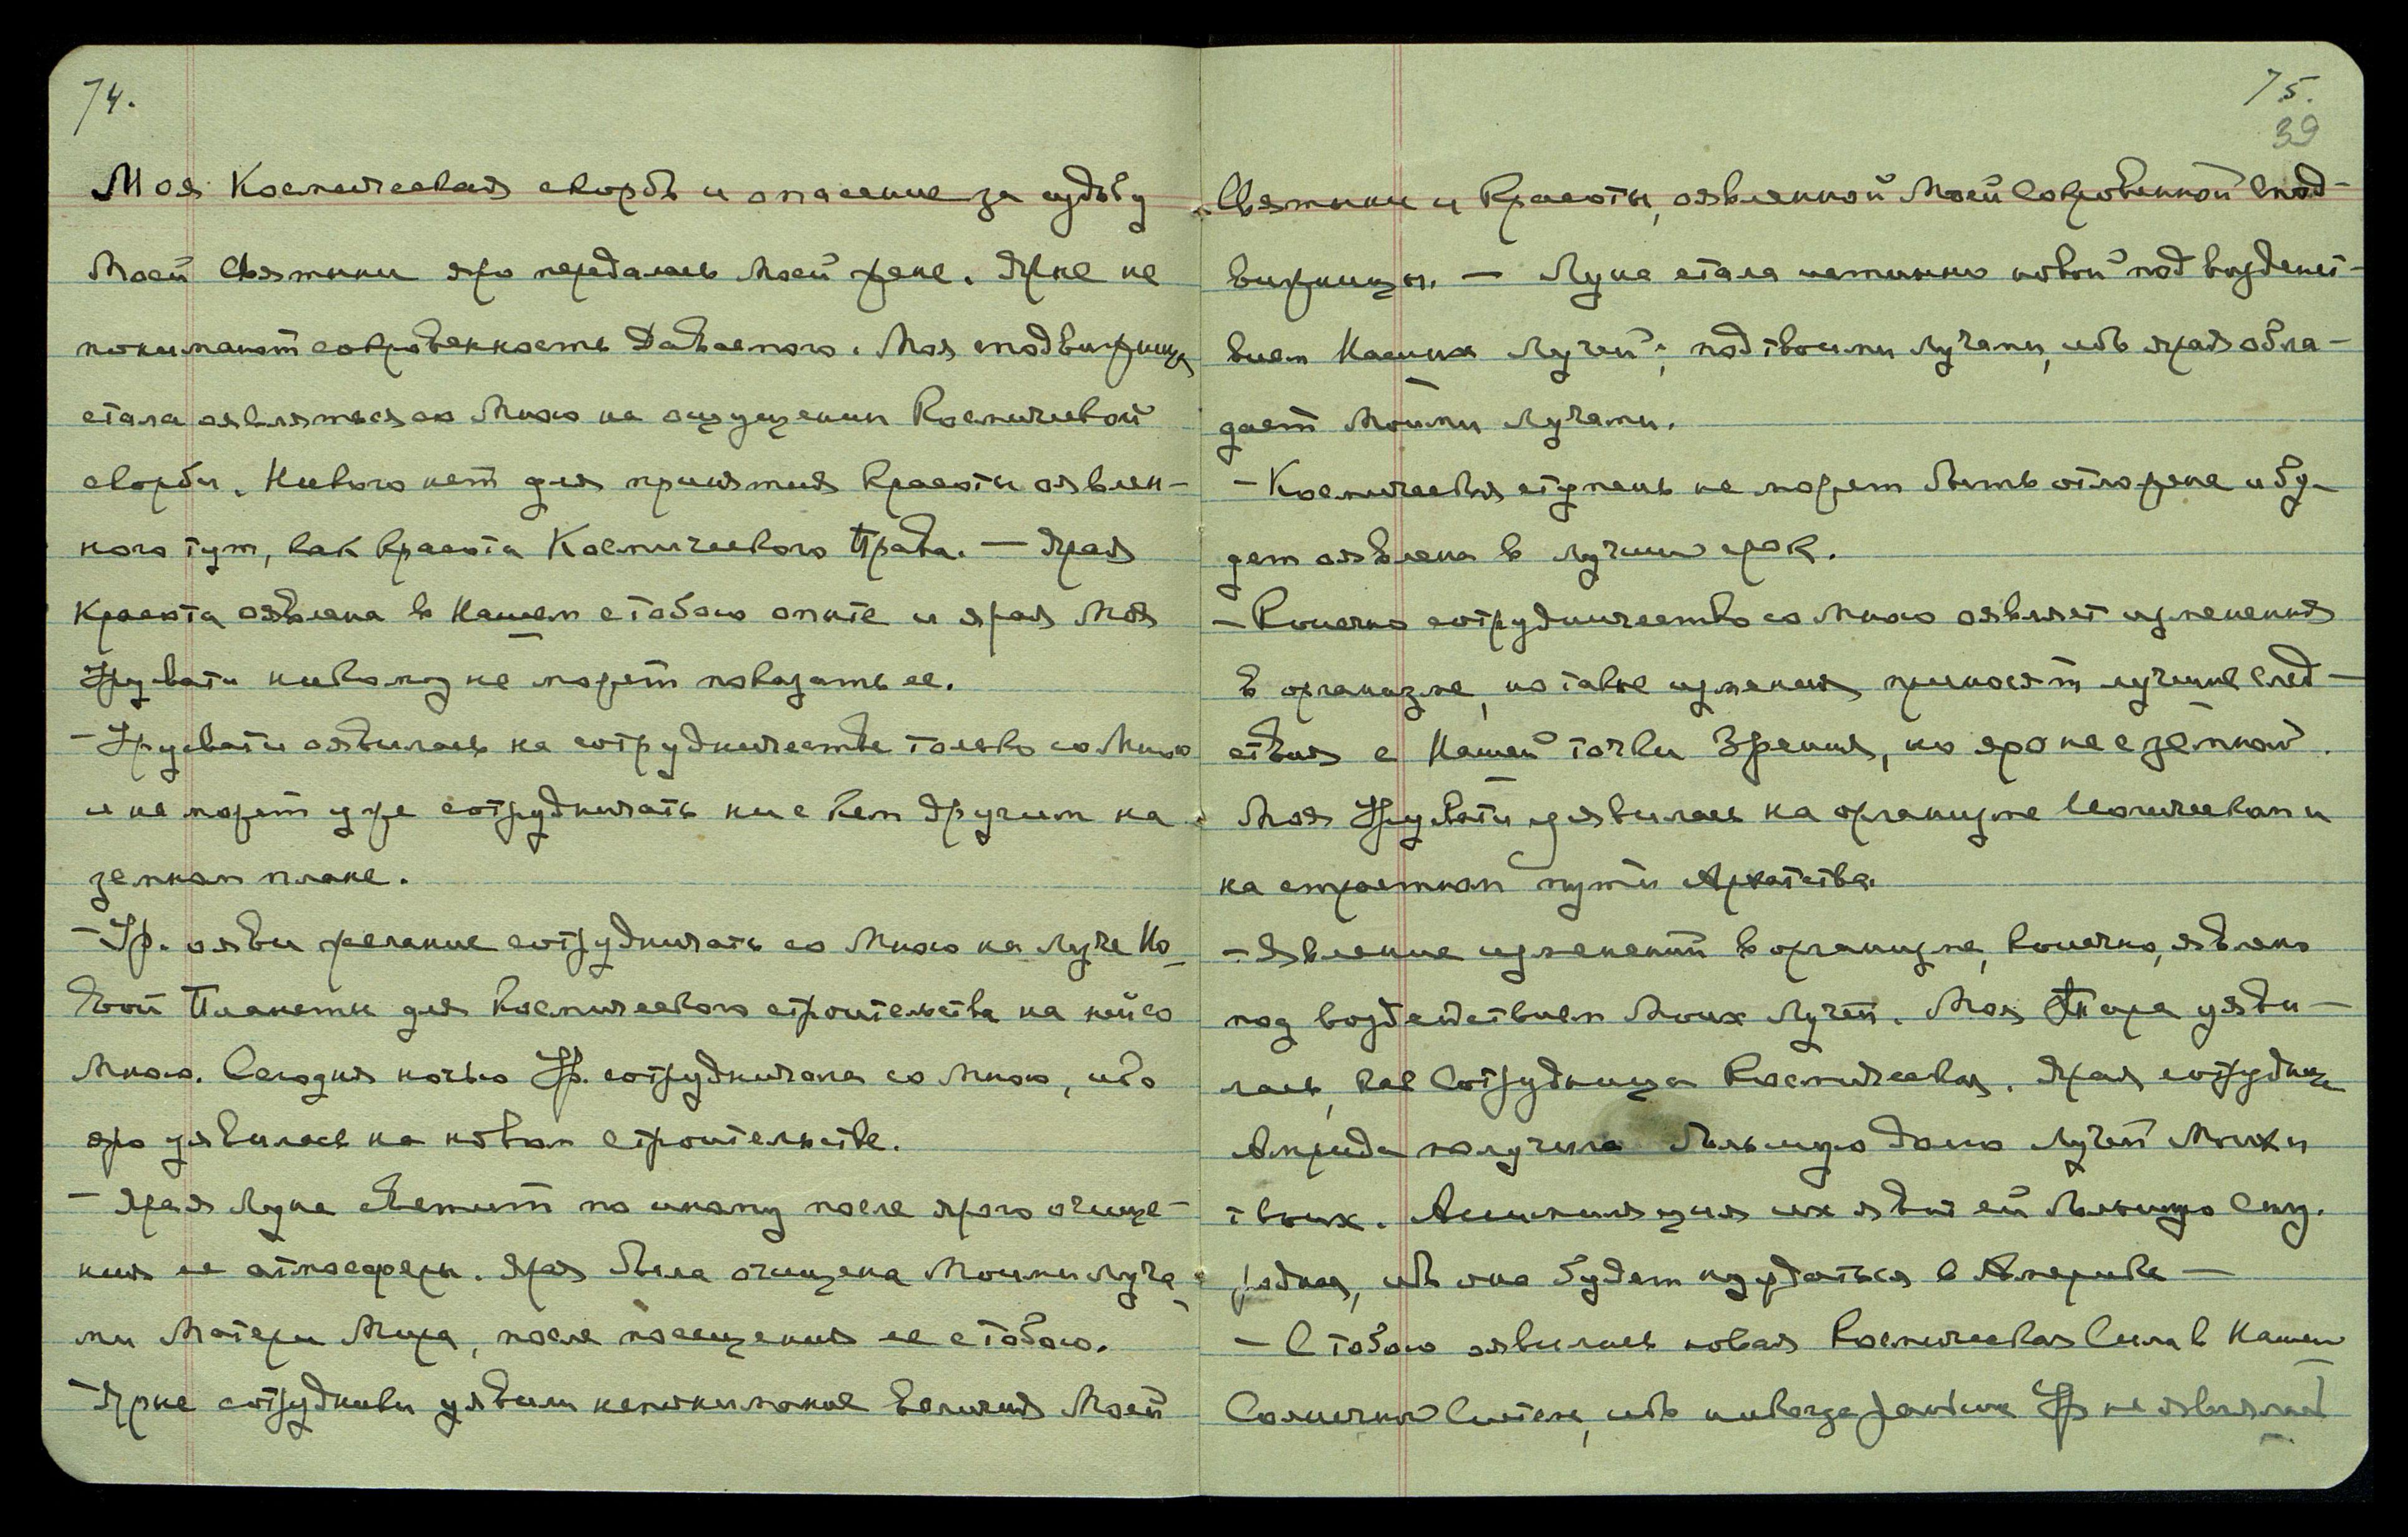 74.
Моя Космическая скорбь и опасение за судьбу
Моей Святыни яро передалась Моей жене. Ярые не
понимают сокровенность Даваемого. Моя сподвижница
стала являться со Мною на ощущении Космической
скорби. Никого нет для принятия Красоты оявлен-
ного тут, как красота Космического Права. — Ярая
Красота оявлена в Нашем с тобою опыте и ярая Моя
Урусвати никому не может показать ее.
- Урусвати оявилась на сотрудничестве только со Мною
и не может уже сотрудничать ни с кем другим на
земном плане.
- Ур. ояви желание сотрудничать со Мною на Луче Но-
вой Планеты для Космического строительства на ней со
Мною. Сегодня ночью Ур. сотрудничала со Мною, ибо
яро уявилась на новом строительстве.
- Ярая Луна светит по иному после ярого очище-
ния ее атмосферы. Ярая была очищена Моими Луча-
ми Матери Мира, после посещения ее с тобою.
- Ярые сотрудники уявили непонимание величия Моей
75.
39
Святыни и Красоты, оявленной Моей Сокровенной Спод-
вижницы. — Луна стала истинно новой под воздейст-
вием Наших Лучей; под твоими лучами, ибо ярая обла-
дает Моими Лучами.
- Космическая ступень не может быть отложена и бу-
дет оявлена в лучший срок.
- Конечно сотрудничество со Мною оявляет изменения
в организме, но такие изменения приносят лучшие след-
ствия с Нашей точки Зрения, но яро не с земной.
Моя Урусвати уявилась на организме Йогическом и
на страстном пути Архатства.
- Явление изменений в организме, конечно, явлено
под воздействием Моих Лучей. Моя Тара уяви-
лась, как Сотрудница Космическая. Ярая сотрудница
Амрида получила большую долю Лучей Моих и
твоих. Ассимиляция их явит ей большую
ибо она будет нуждаться в Америке —
- С тобою оявилась новая Космическая Сила в Нашей
Солнечной Системе, ибо никогда раньше Ур не являлась